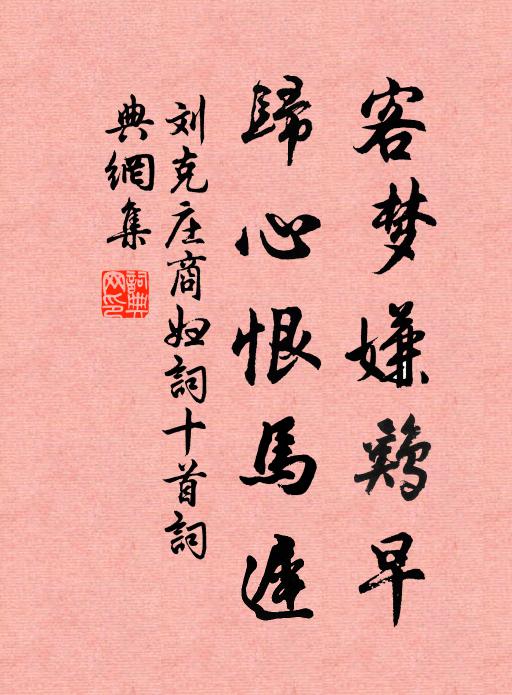 客梦嫌鷄早
歸心恨馬遲
刘克庄商妇詞十首詞
典網集
詞典
网印